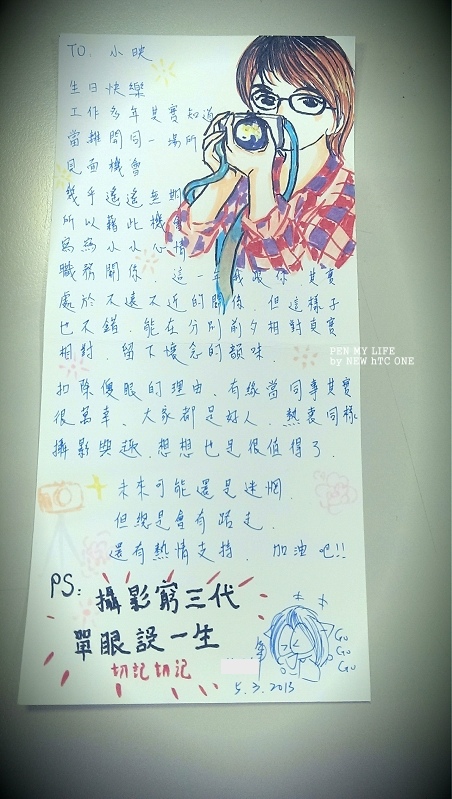 TO. 小映
生日快樂
工作多年其實知道
當離開同一場所
見面機會
幾乎遙遙無期
所以藉此機會
寫寫小小心情
職務關係，這一年我跟你，其實
處於不遠不近的關係，但這樣子
也不錯，能在分別前夕相對真實
相對，留下懷念的韻味．
扣除傻眼的理由，有緣當同事其實
很萬幸，大家都是好人，熱衷同樣
攝影興趣，想想也是很值得了．
未來可能還是迷惘．
但總是會有路走．
還有熱情支持． 加油吧!!
PS: 攝影窮三代
單眼誤一生
切記切記
GO
GO
GO
5.3.2013
PEN MY LIFE
by NEW hTC ONE